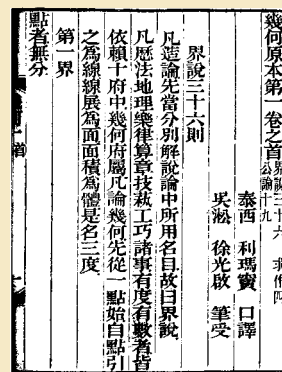 幾何原本第一卷之首 界說三十六 求作四
公論十九
泰西 利瑪竇 口譯
吳淞 徐光啟 筆受
界說三十六則
凡造論先當分別解說論中所用名目故曰界說
凡歷法地理樂律算章技藝工巧諸事有度有數者皆
依賴十府中幾何府屬凡論幾何先從一點始自點引
之為線線展為面面積為體是名三度
第一界
點者無分